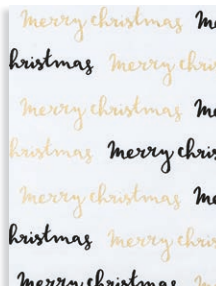 merry christmas me
hristmas merry chri
merry christmas me
hristmas merry chris
merry christmas me
hristmas merry chris
merry christmas m